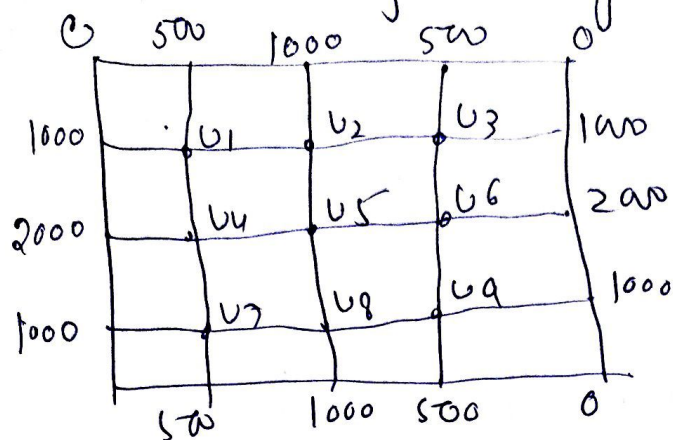 0 500 1000 500 0
1000 U1 U2 U3 1000
2000 U4 U5 U6 2000
1000 U7 U8 U9 1000
500 1000 500 0